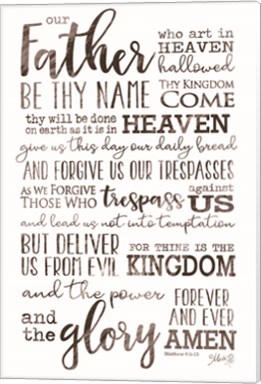 our
Father who art in
HEAVEN
hallowed
BE THY NAME THY KINGDOM
COME
thy will be done
on earth as it is in HEAVEN
give us this day our daily bread
AND FORGIVE US OUR TRESPASSES
AS WE FORGIVE
THOSE WHO trespass against
US
and lead us not into temptation
BUT DELIVER
US FROM EVIL FOR THINE IS THE
KINGDOM
and the power
and the glory FOREVER
AND EVER
AMEN
Matthew 6:9-13